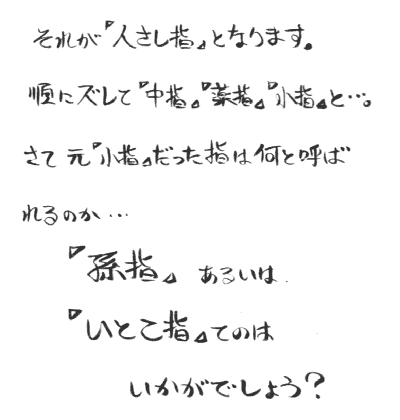 それが『人さし指』となります。
順にズレて『中指』『薬指』『小指』と…。
さて元『小指』だった指は何と呼ば
れるのか…
『孫指』あるいは
『いとこ指』てのは
いかがでしょう？